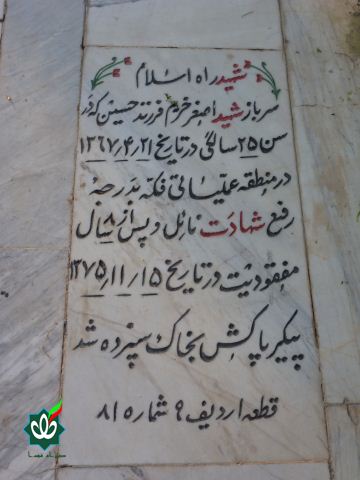 شهید راه اسلام
سرباز شهید اصغر خرم فرزند حسین که در
سن ۲۵ سالگی در تاریخ ۱۳۶۷٫۴٫۲۱
در منطقه عملیاتی فکه بدرجه
رفیع شهادت نائل و پس از ۸ سال
مفقودیت در تاریخ ۱۳۷۵٫۱۱٫۱۵
پیکر پاکش بخاک سپرده شد
قطعه ۱ ردیف ۹ شماره ۸۱